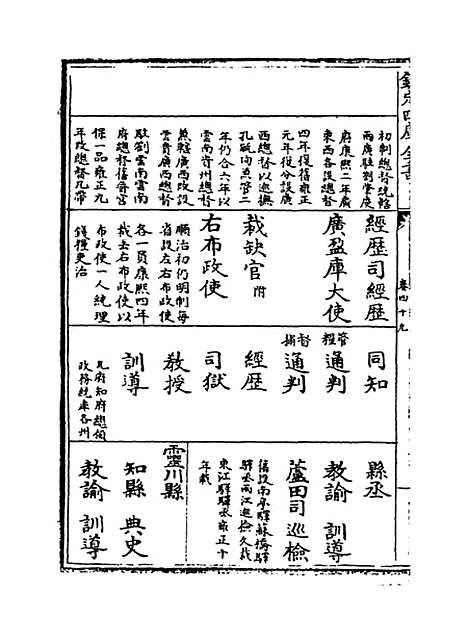 欽定四庫全書
卷四十九
初制總督統轄
兩廣駐劄肇慶
府康熙二年廣
東西各設總督
四年復舊雍正
元年復分設廣
西總督以巡撫
孔毓珣兼管二
年仍合六年以
雲南貴州總督
兼轄廣西改設
雲貴廣西總督
駐劄雲南雲南
府總督舊宮
保一品雍正九
年改總督凡帶
經歷司經歷
廣盈庫大使
裁缺官 附
右布政使
順治初仍明制每
省設左右布政使
各一員康熙四年
裁去右布政使以
布政使一人統理
錢糧吏治
同知
管糧通判
督捕通判
經歷
司獄
教授
訓導
凡府知府總領
政務統率各州
縣丞
教諭 訓導
蘆田司巡檢
舊設南亭驛蘇橋驛
驛丞兩江巡檢久裁
東江驛驛丞雍正十
年裁
靈川縣
知縣 典史
教諭 訓導